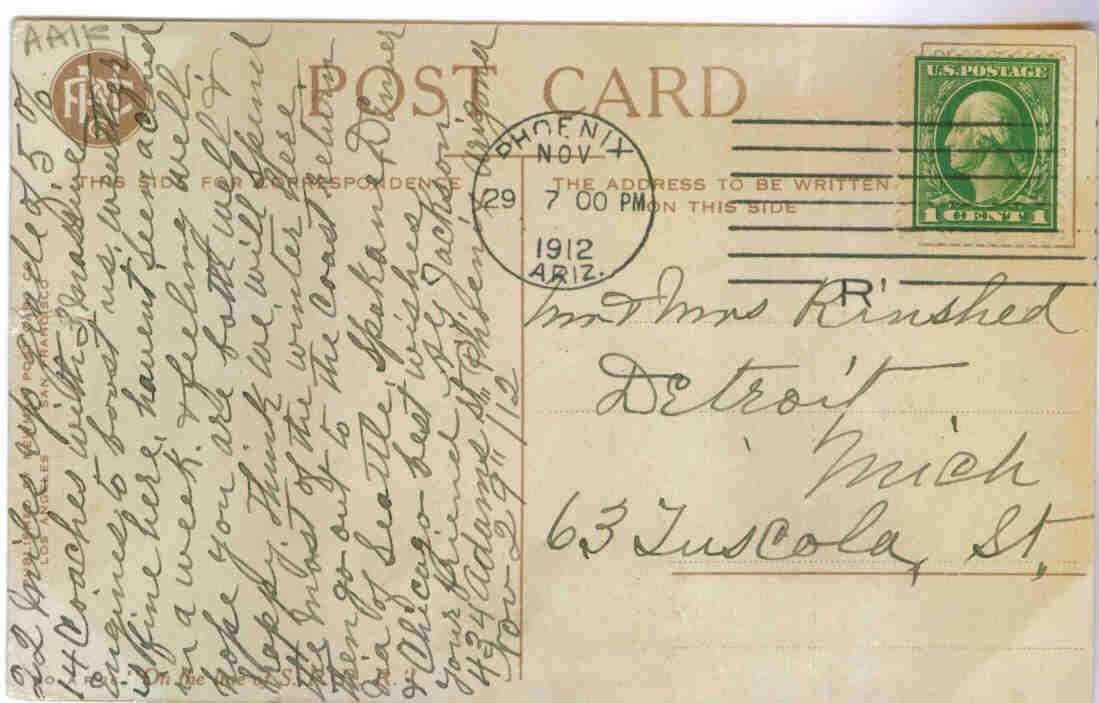 AA1F
POST CARD
THIS SIDE FOR CORRESPONDENCE
THE ADDRESS TO BE WRITTEN
ON THIS SIDE
PHOENIX
NOV
29 7 00 PM
1912
ARIZ.
U.S. POSTAGE
1 CENT 1
R
Mr & Mrs Rinshed
Detroit
Mich
63 Tuscola, St.
22 miles up grade of 5%
14 Coaches with 3 massive
engines to boost us, weather
is fine here, havent seen a cloud
in a week. & feeling well
hope you are both well &
happy. Think we will spend
the most of the winter here
then go out to the Coast. return
via of Seattle, Spokane, Denver
& Chicago best wishes
your friend Jackson
434 Adams St. Phoenix Arizona
Nov 29" /12
LOS ANGELES SAN FRANCISCO
On the line of S.